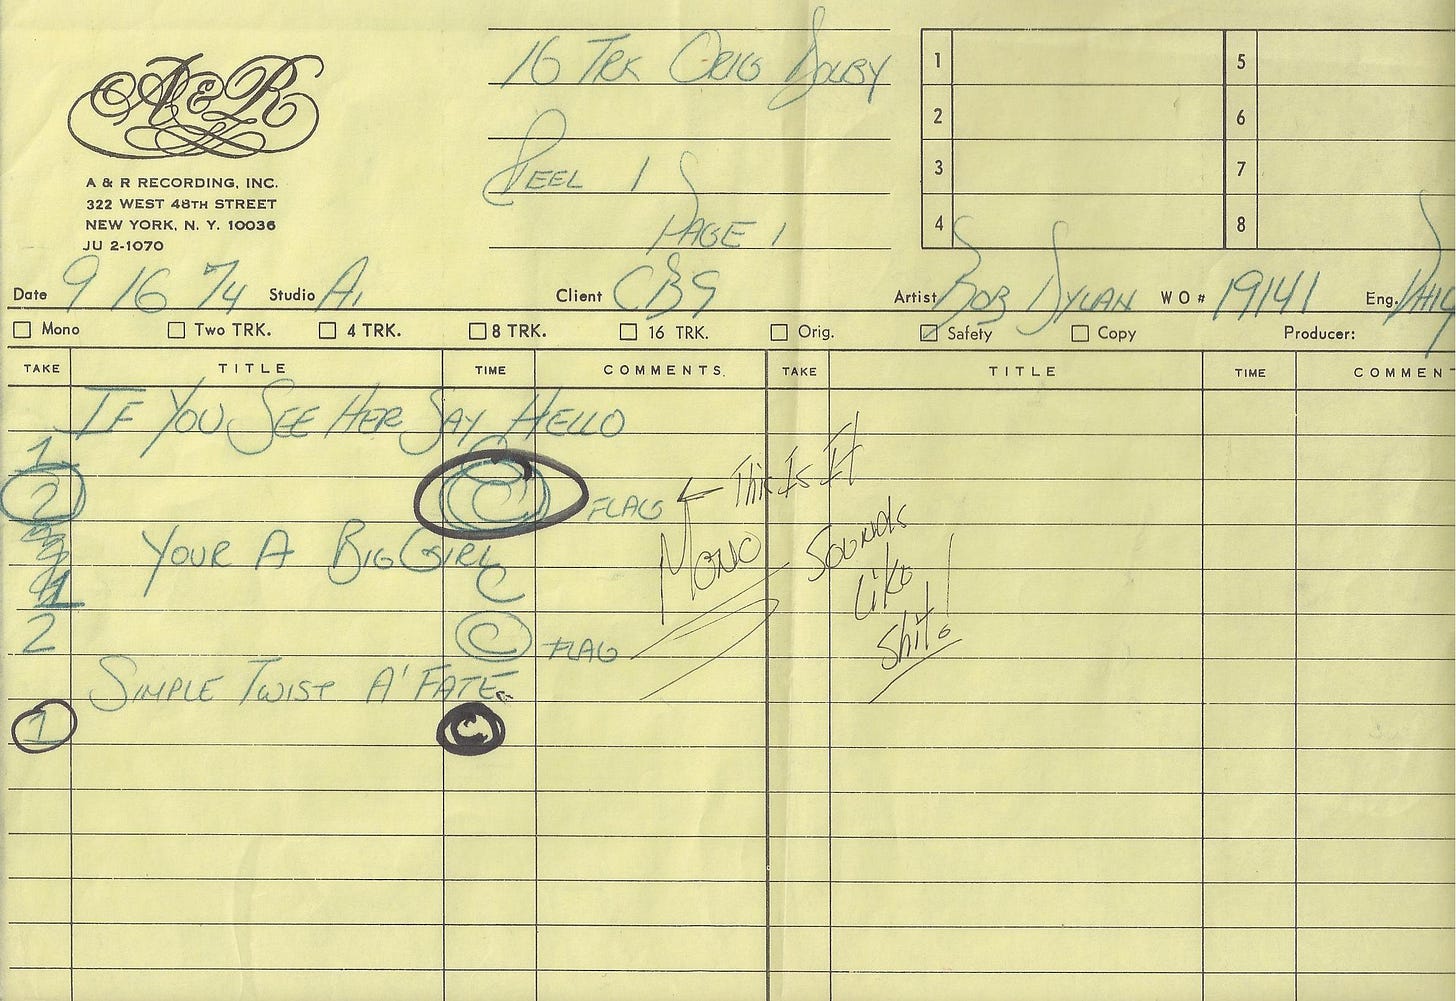 A&R
16 TRK ORIG DOLBY
A & R RECORDING, INC.
322 WEST 48TH STREET
NEW YORK, N. Y. 10036
JU 2-1070
REEL 1
PAGE 1
1 5
2 6
3 7
4 8
Date 9 16 74 Studio A1 Client CBS Artist BOB DYLAN W O # 19141 Eng. PHIL
Mono Two TRK. 4 TRK. 8 TRK. 16 TRK. Orig. Safety Copy Producer:
TAKE TITLE TIME COMMENTS. TAKE TITLE TIME COMMEN
IF YOU SEE HER SAY HELLO
1 C
2 C FLAG ← This Is It
MONO Sounds Like Shit!
YOUR A BIG GIRL
1 C
2 C FLAG
SIMPLE TWIST A' FATE
1 C